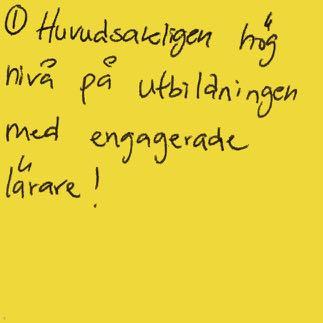 ① Huvudsakligen hög
nivå på utbildningen
med engagerade
lärare!